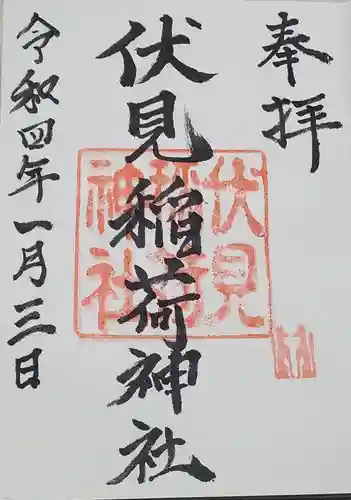 奉拝
伏見稲荷神社
令和四年一月三日
伏見
稲荷
神社